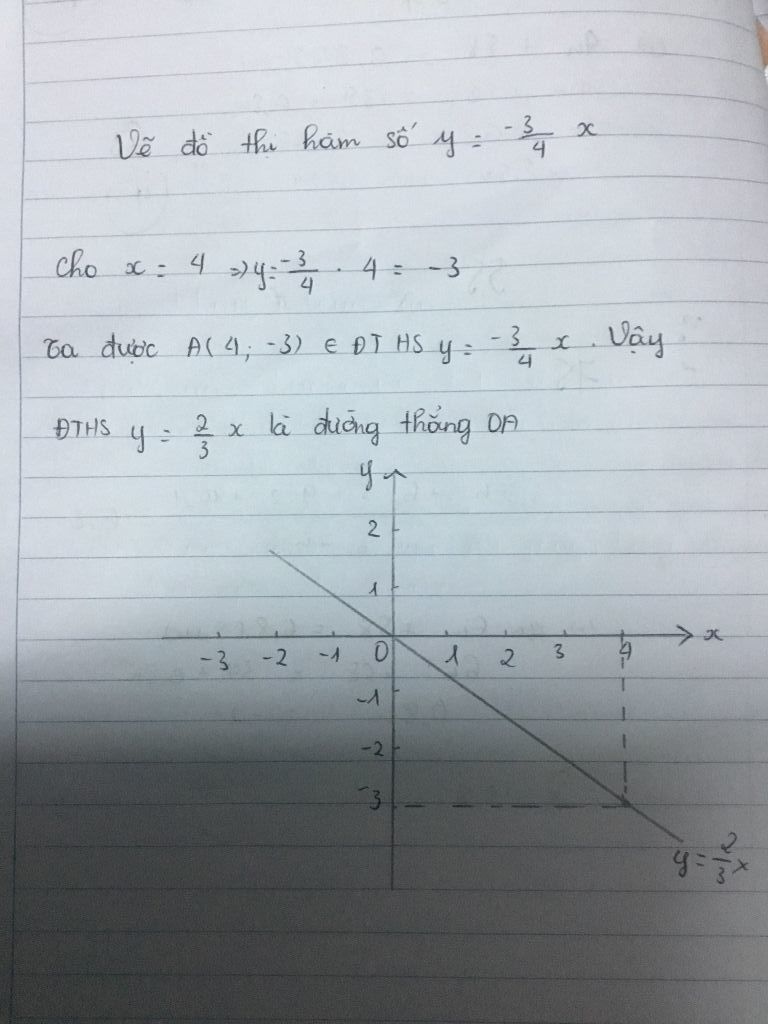 Vẽ đồ thị hàm số y = -3/4 x
Cho x = 4 => y = -3/4 . 4 = -3
Ta được A(4; -3) ∈ ĐTHS y = -3/4 x. Vậy
ĐTHS y = 2/3 x là đường thẳng OA
y
2
1
-3 -2 -1 0 1 2 3 4 x
-1
-2
-3
y = 2/3 x